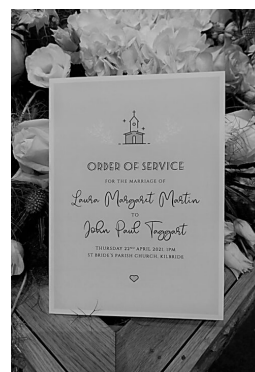 ORDER OF SERVICE
FOR THE MARRIAGE OF
Laura Margaret Martin
TO
John Paul Taggart
THURSDAY 22ND APRIL 2021, 1PM
ST BRIDE'S PARISH CHURCH, KILBRIDE